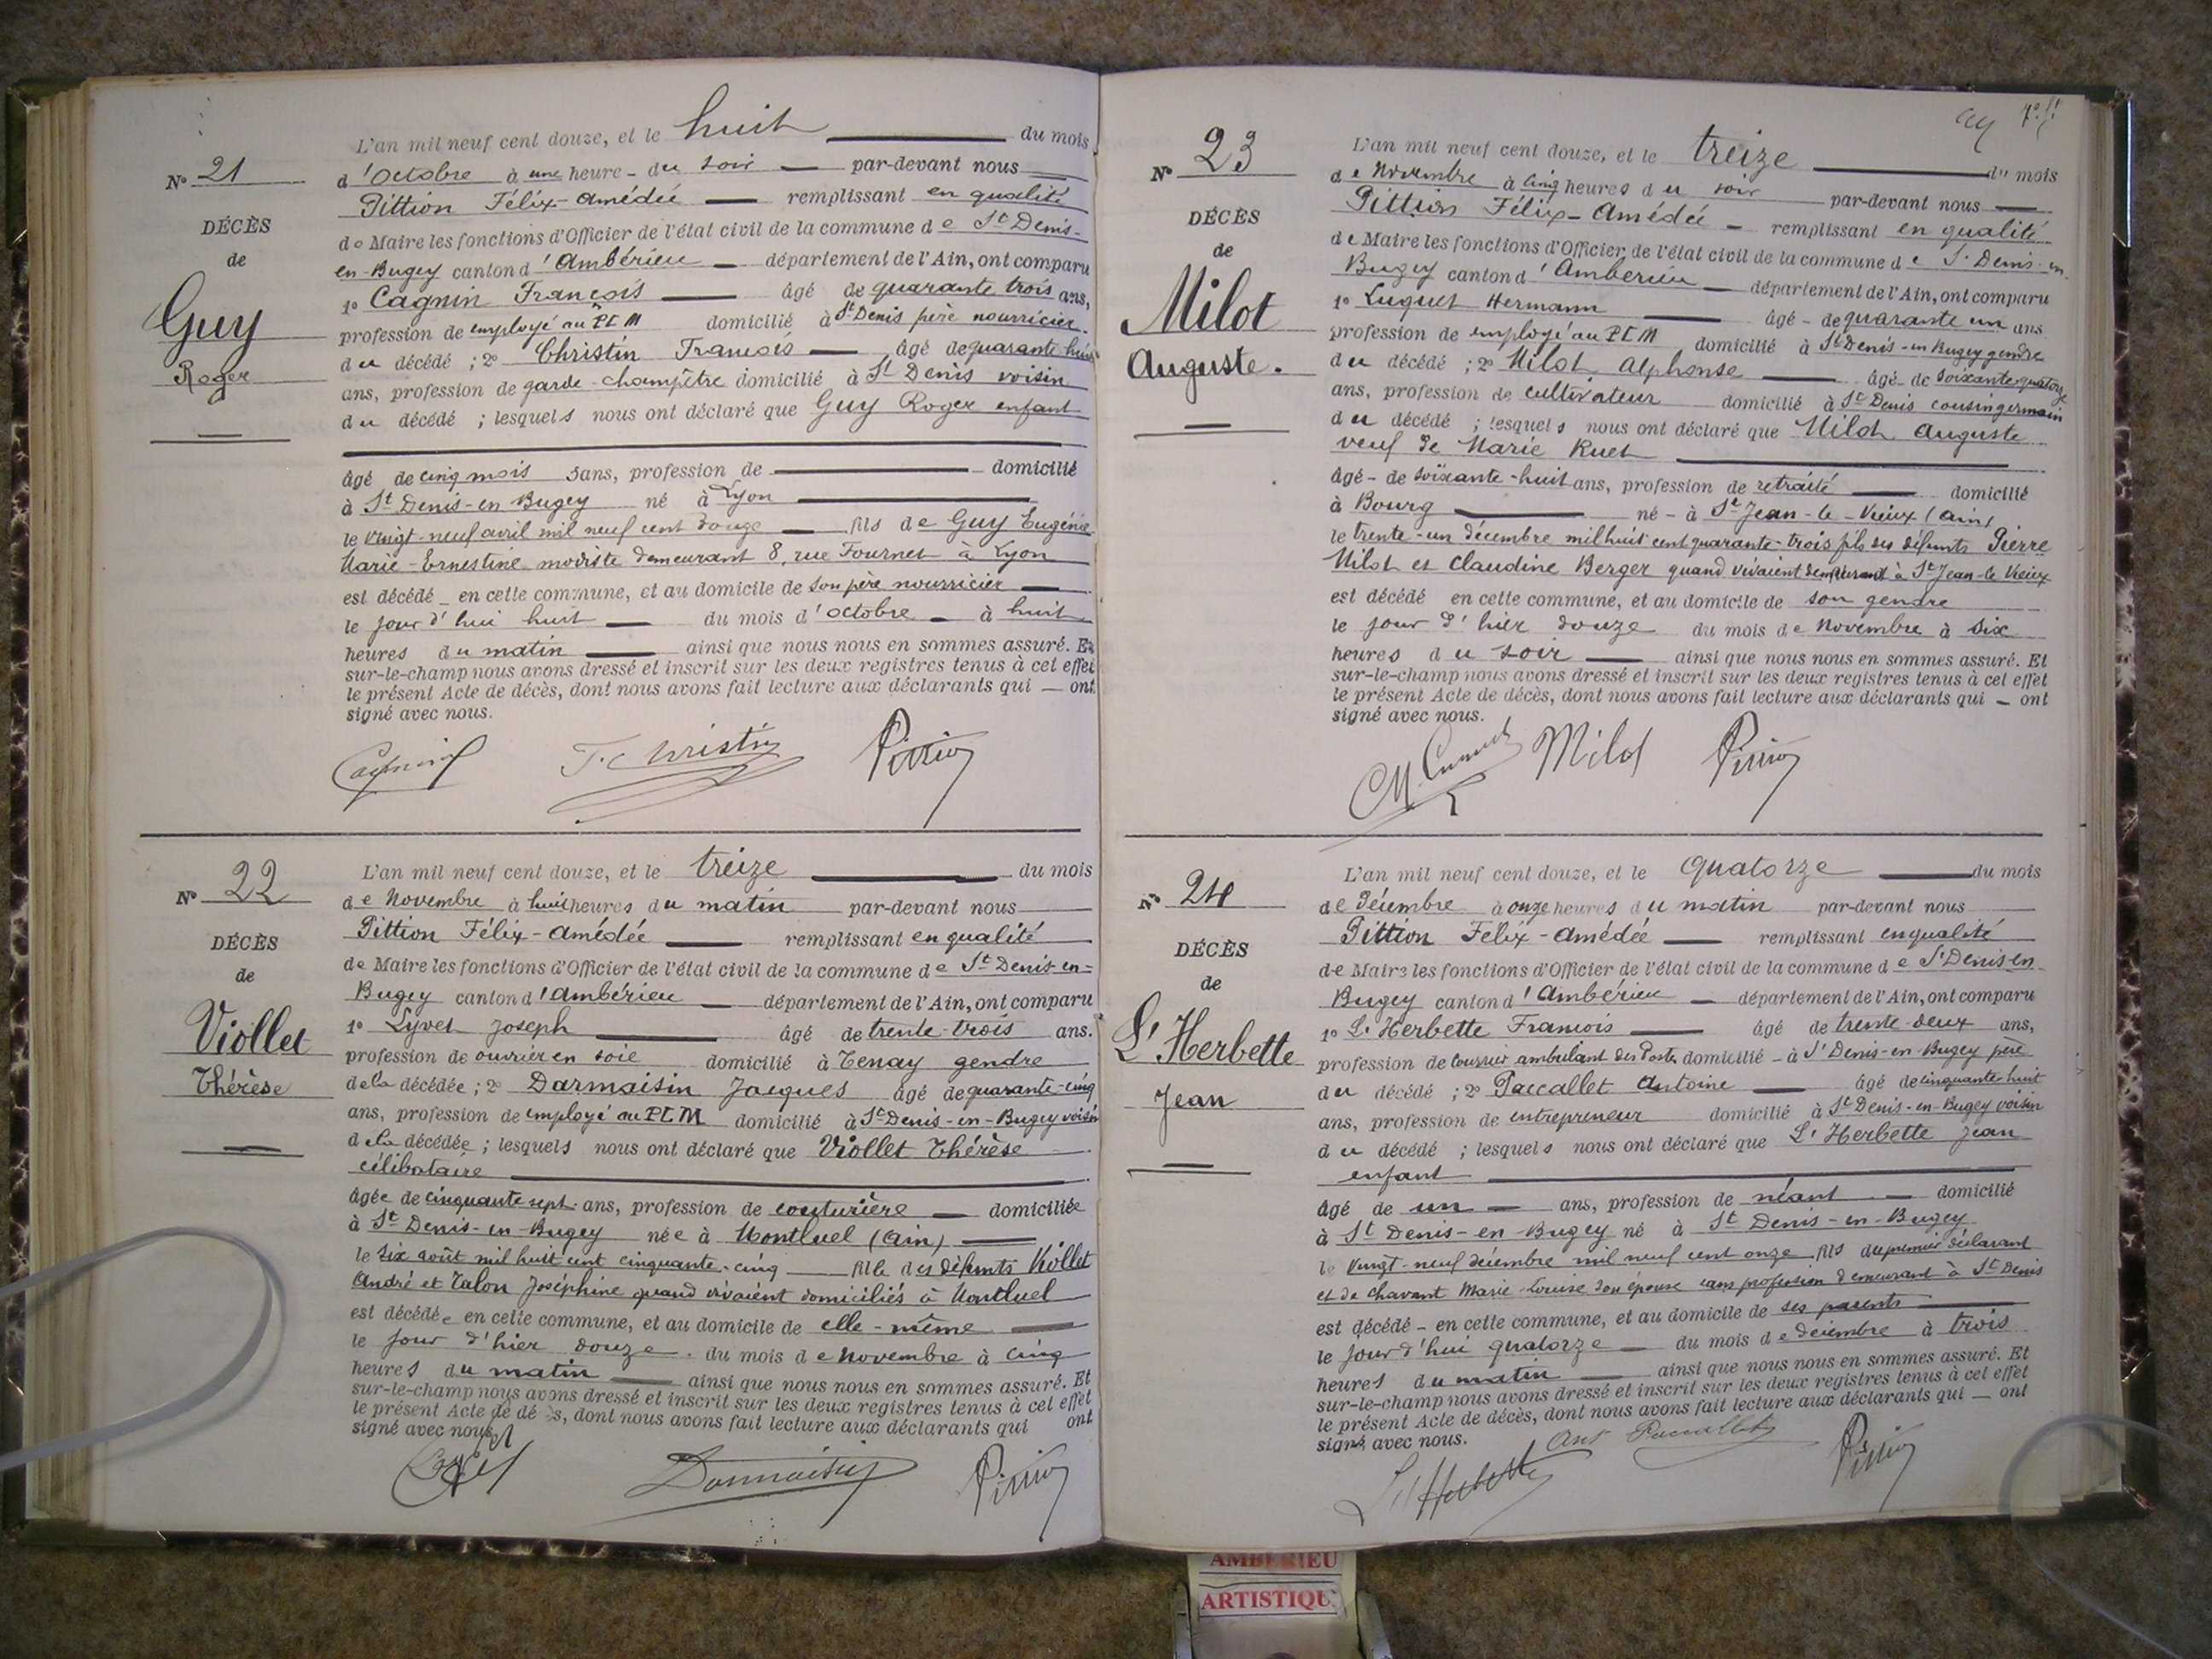 L'an mil neuf cent douze, et le huit du mois
N° 21
d'Octobre à une heure - du soir par-devant nous
Pittion Félix-Amédée remplissant en qualité
DÉCÈS
de Maire les fonctions d'Officier de l'état civil de la commune de St Denis-
de
en-Bugey canton d'Ambérieu département de l'Ain, ont comparu
1° Cagnin François âgé de quarante trois ans,
Guy
profession de employé au PLM domicilié à St Denis père nourricier.
du décédé ; 2° Christin François âgé de quarante huit
Roger
ans, profession de garde-champêtre domicilié à St Denis voisin
du décédé ; lesquels nous ont déclaré que Guy Roger enfant
âgé de cinq mois ans, profession de domicilié
à St Denis-en-Bugey né à Lyon
le vingt-neuf avril mil neuf cent douze fils de Guy Eugénie
Marie-Ernestine modiste demeurant 8, rue Fournet à Lyon
est décédé en cette commune, et au domicile de son père nourricier
le jour d'hui huit du mois d'octobre à huit
heures du matin ainsi que nous nous en sommes assuré. Et
sur-le-champ nous avons dressé et inscrit sur les deux registres tenus à cet effet
le présent Acte de décès, dont nous avons fait lecture aux déclarants qui ont
signé avec nous.
Cagnin F. Christin Pittion
L'an mil neuf cent douze, et le treize du mois
N° 22
de Novembre à huit heures du matin par-devant nous
Pittion Félix-Amédée remplissant en qualité
DÉCÈS
de Maire les fonctions d'Officier de l'état civil de la commune de St Denis-en-
de
Bugey canton d'Ambérieu département de l'Ain, ont comparu
Viollet
1° Lyvet Joseph âgé de trente-trois ans.
profession de ouvrier en soie domicilié à Tenay gendre
Thérèse
de la décédée ; 2° Darmaisin Jacques âgé de quarante-cinq
ans, profession de employé au PLM domicilié à St Denis-en-Bugey voisin
de la décédée ; lesquels nous ont déclaré que Viollet Thérèse
célibataire
âgée de cinquante-sept ans, profession de couturière domiciliée
à St Denis-en-Bugey née à Montluel (Ain)
le six août mil huit cent cinquante-cinq fille des défunts Viollet
André et Talon Joséphine quand vivaient domiciliés à Montluel
est décédée en cette commune, et au domicile de elle-même
le jour d'hier douze du mois de Novembre à cinq
heures du matin ainsi que nous nous en sommes assuré. Et
sur-le-champ nous avons dressé et inscrit sur les deux registres tenus à cet effet
le présent Acte de dé s, dont nous avons fait lecture aux déclarants qui ont
signé avec nous.
Darmaisin Pittion
L'an mil neuf cent douze, et le treize du mois
N° 23
de Novembre à cinq heures du soir par-devant nous
Pittion Félix-Amédée remplissant en qualité
DÉCÈS
de Maire les fonctions d'Officier de l'état civil de la commune de St Denis-en-
de
Bugey canton d'Ambérieu département de l'Ain, ont comparu
Milot
1° Luquet Hermann âgé - de quarante un ans
profession de employé au PLM domicilié à St Denis-en-Bugey gendre
Auguste.
du décédé ; 2° Milot Alphonse âgé - de soixante-quatorze
ans, profession de cultivateur domicilié à St Denis cousin germain
du décédé ; lesquels nous ont déclaré que Milot Auguste
veuf de Marie Ruet
âgé - de soixante-huit ans, profession de retraité domicilié
à Bourg né - à St Jean-le-Vieux (Ain)
le trente-un décembre mil huit cent quarante-trois fils des défunts Pierre
Milot et Claudine Berger quand vivaient demeurant à St Jean-le Vieux
est décédé en cette commune, et au domicile de son gendre
le jour d'hier douze du mois de Novembre à six
heures du soir ainsi que nous nous en sommes assuré. Et
sur-le-champ nous avons dressé et inscrit sur les deux registres tenus à cet effet
le présent Acte de décès, dont nous avons fait lecture aux déclarants qui ont
signé avec nous.
Milot Pittion
L'an mil neuf cent douze, et le quatorze du mois
N° 24
de Décembre à onze heures du matin par-devant nous
Pittion Félix-Amédée remplissant en qualité
DÉCÈS
de Maire les fonctions d'Officier de l'état civil de la commune de St Denis-en
de
Bugey canton d'Ambérieu département de l'Ain, ont comparu
L'Herbette
1° L'Herbette François âgé de trente-deux ans,
profession de courrier ambulant des Postes domicilié - à St Denis-en-Bugey père
Jean
du décédé ; 2° Paccallet Antoine âgé de cinquante-huit
ans, profession de entrepreneur domicilié à St Denis-en-Bugey voisin
du décédé ; lesquels nous ont déclaré que L'Herbette Jean
enfant
âgé de un ans, profession de néant domicilié
à St Denis-en-Bugey né à St Denis-en-Bugey
le vingt-neuf décembre mil neuf cent onze fils du premier déclarant
et de Chavant Marie-Louise son épouse sans profession demeurant à St Denis
est décédé - en cette commune, et au domicile de ses parents
le jour d'hui quatorze du mois de décembre à trois
heures du matin ainsi que nous nous en sommes assuré. Et
sur-le-champ nous avons dressé et inscrit sur les deux registres tenus à cet effet
le présent Acte de décès, dont nous avons fait lecture aux déclarants qui ont
signé avec nous.
Ant Paccallet
L'Herbette Pittion
AMBERIEU
ARTISTIQU